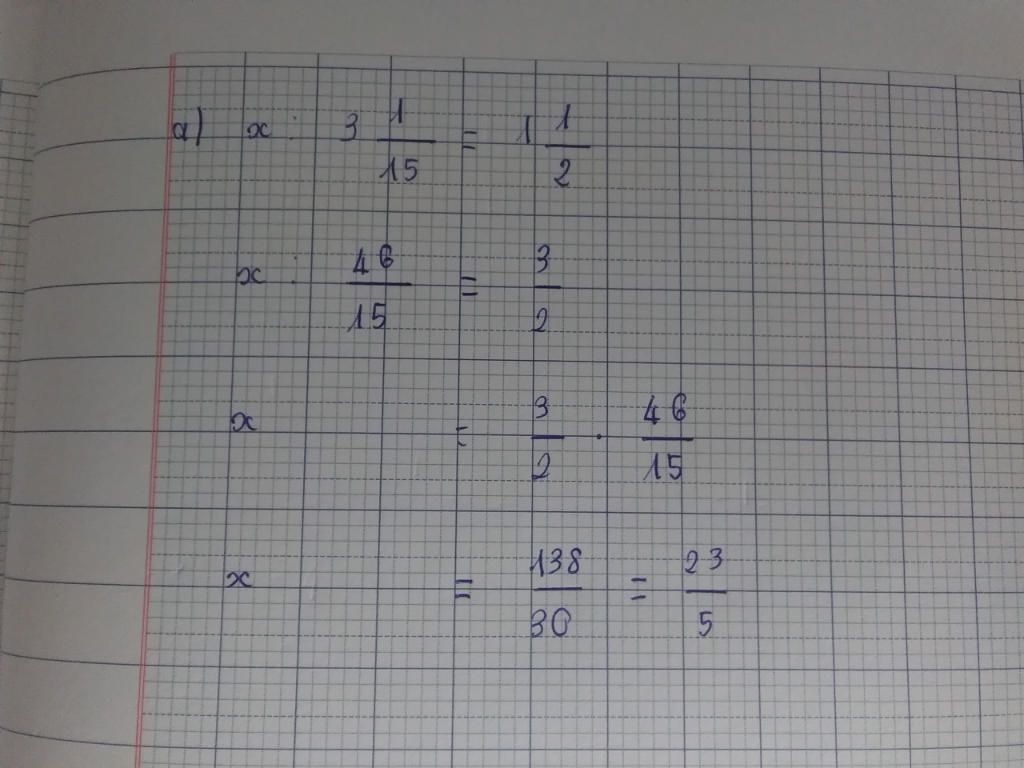 a) x : 3 1/15 = 1 1/2
x : 46/15 = 3/2
x = 3/2 . 46/15
x = 138/30 = 23/5